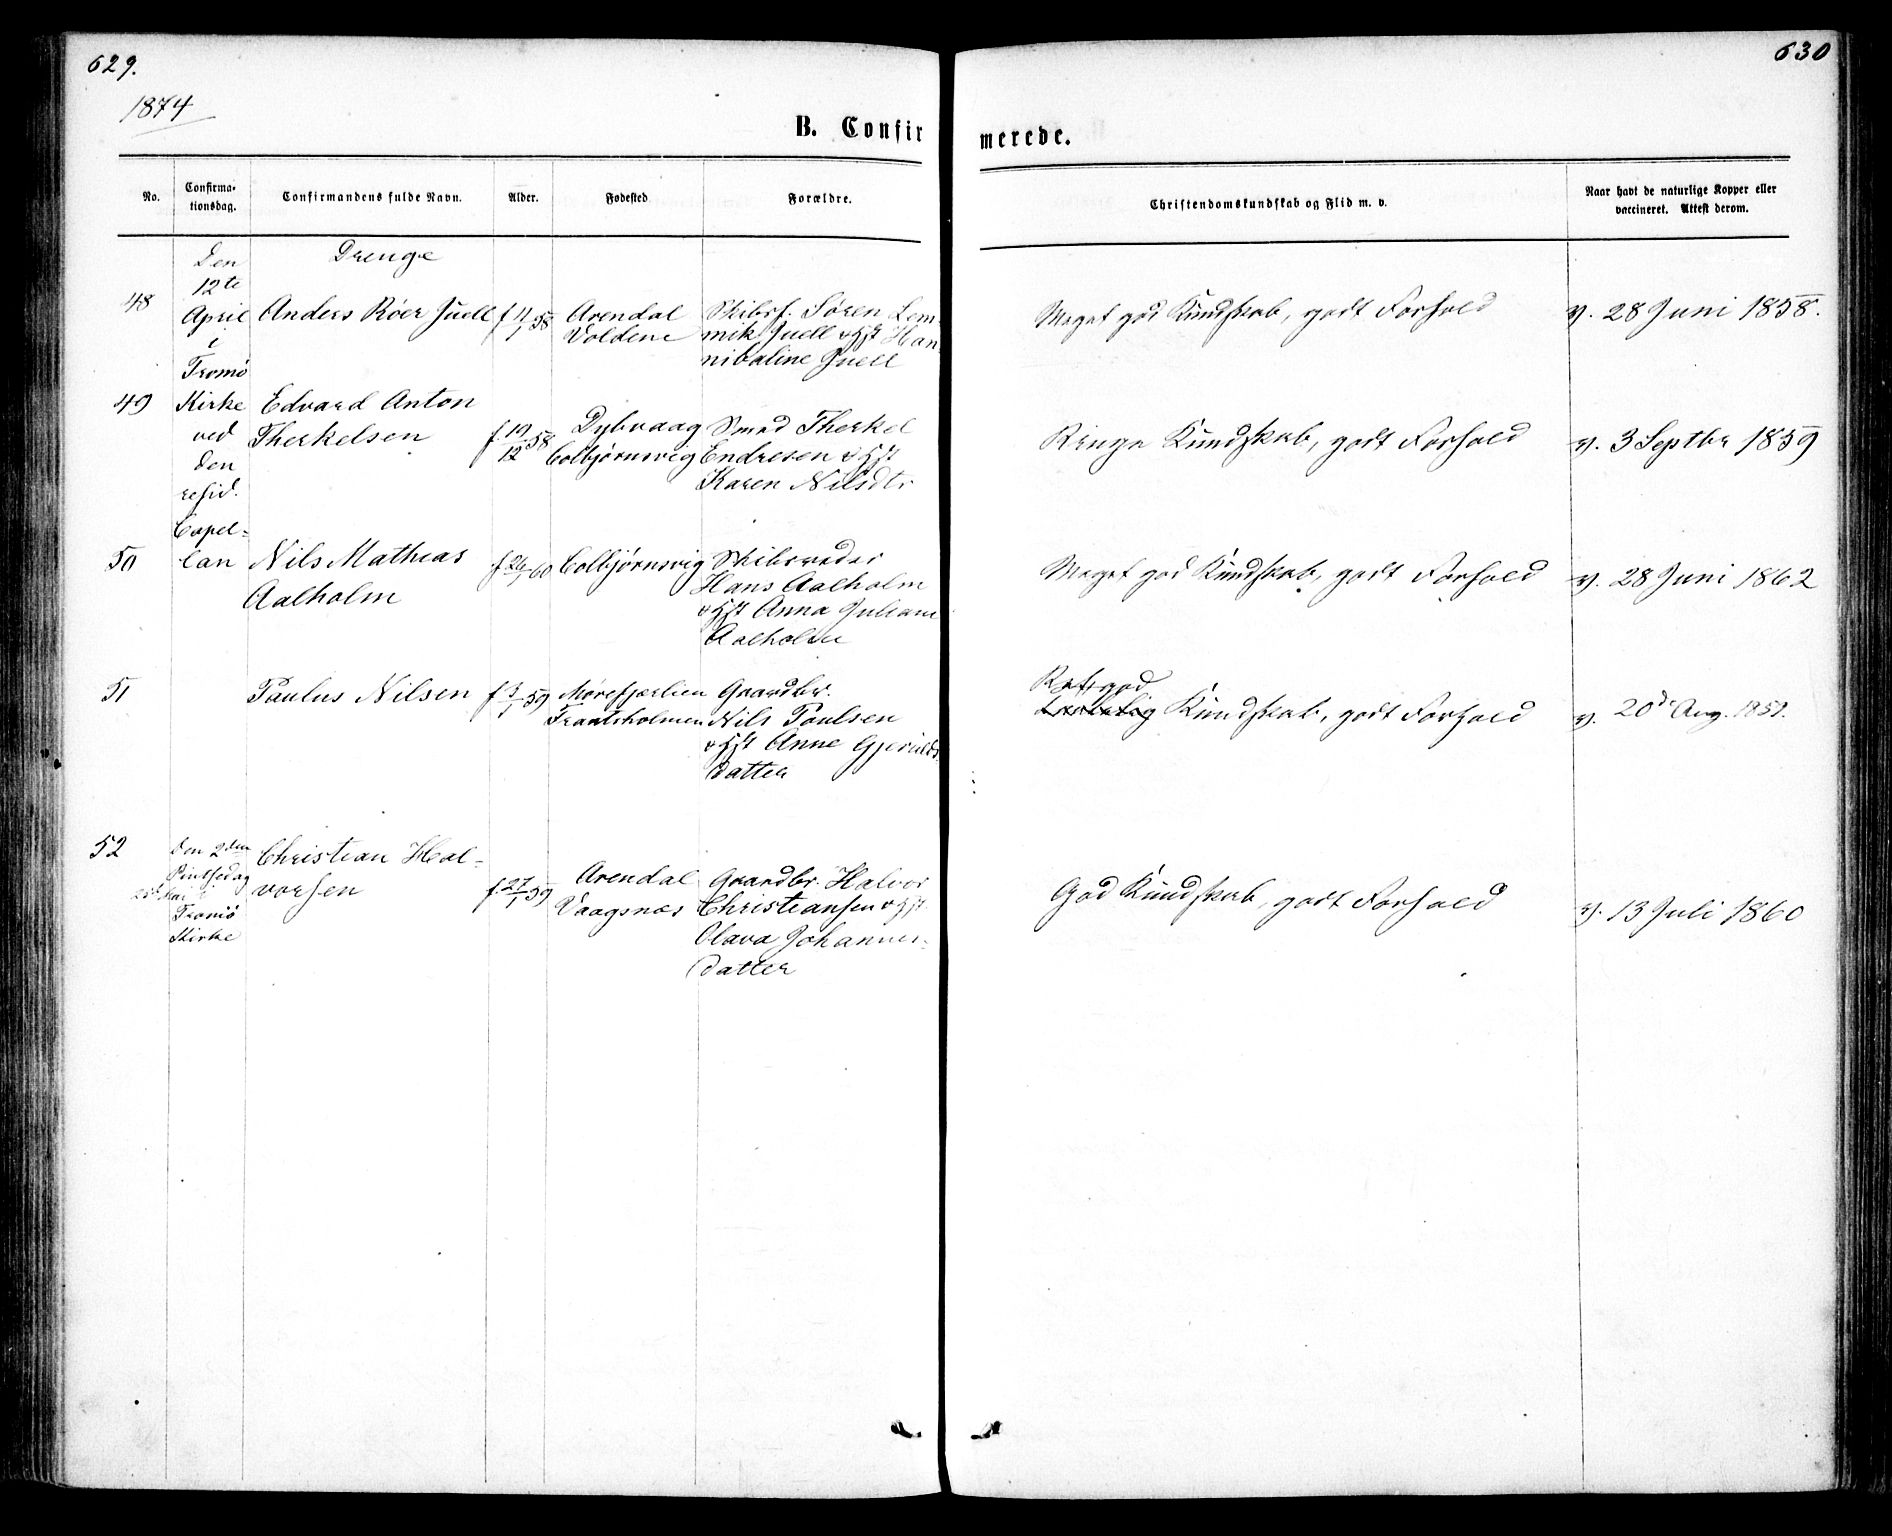 629.
630
1874
B. Confir
merede.
No.
Confirma-
tionsdag.
Confirmandens fulde Navn.
Alder.
Fødested
Forældre.
Christendomskundskab og Flid m. v.
Naar havt de naturlige Kopper eller
vaccineret. Attest derom.
Den
12te
April
i
Tromø
Kirke
ved
den
resid.
Capel-
lan
Drenge
48
Anders Röer Juell
f 11/1 58
Arendal
Voldene
Skibsf. Sören Lem-
mik Juell & Hst Han-
nibaline Juell
Meget god Kundskab, godt Forhold
v. 28 Juni 1858.
49
Edvard Anton
Therkelsen
f 19/12 58
Dybvaag
Colbjørnsvig
Smed Therkel
Endresen & Hst
Karen Nilsdtr
Ringe Kundskab, godt Forhold
v. 3 Septbr 1859
50
Nils Mathias
Aalholm
f 26/1 60
Colbjørnsvig
Skibsreder
Hans Aalholm
& Hst Anna Juliane
Aalholm
Meget god Kundskab, godt Forhold
v. 28 Juni 1862
51
Paulus Nilsen
f 3/1 59
Mørefjærlien
Gaardbr.
Nils Poulsen
& Hst Anne Gjerulds-
datter
Ret god
Kundskab, godt Forhold
v. 20de Aug. 1859.
52
Den 2den
Pintsedag
25de Mai i
Tromø
Kirke
Christian Hal-
vorsen
f 27/1 59
Arendal
Vaagsnæs
Gaardbr. Halvor
Christiansen & Hst
Olava Johannes-
datter
God Kundskab, godt Forhold
v. 13 Juli 1860